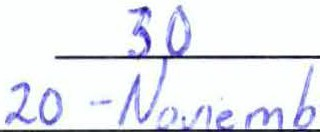 30
20 - Noviemb